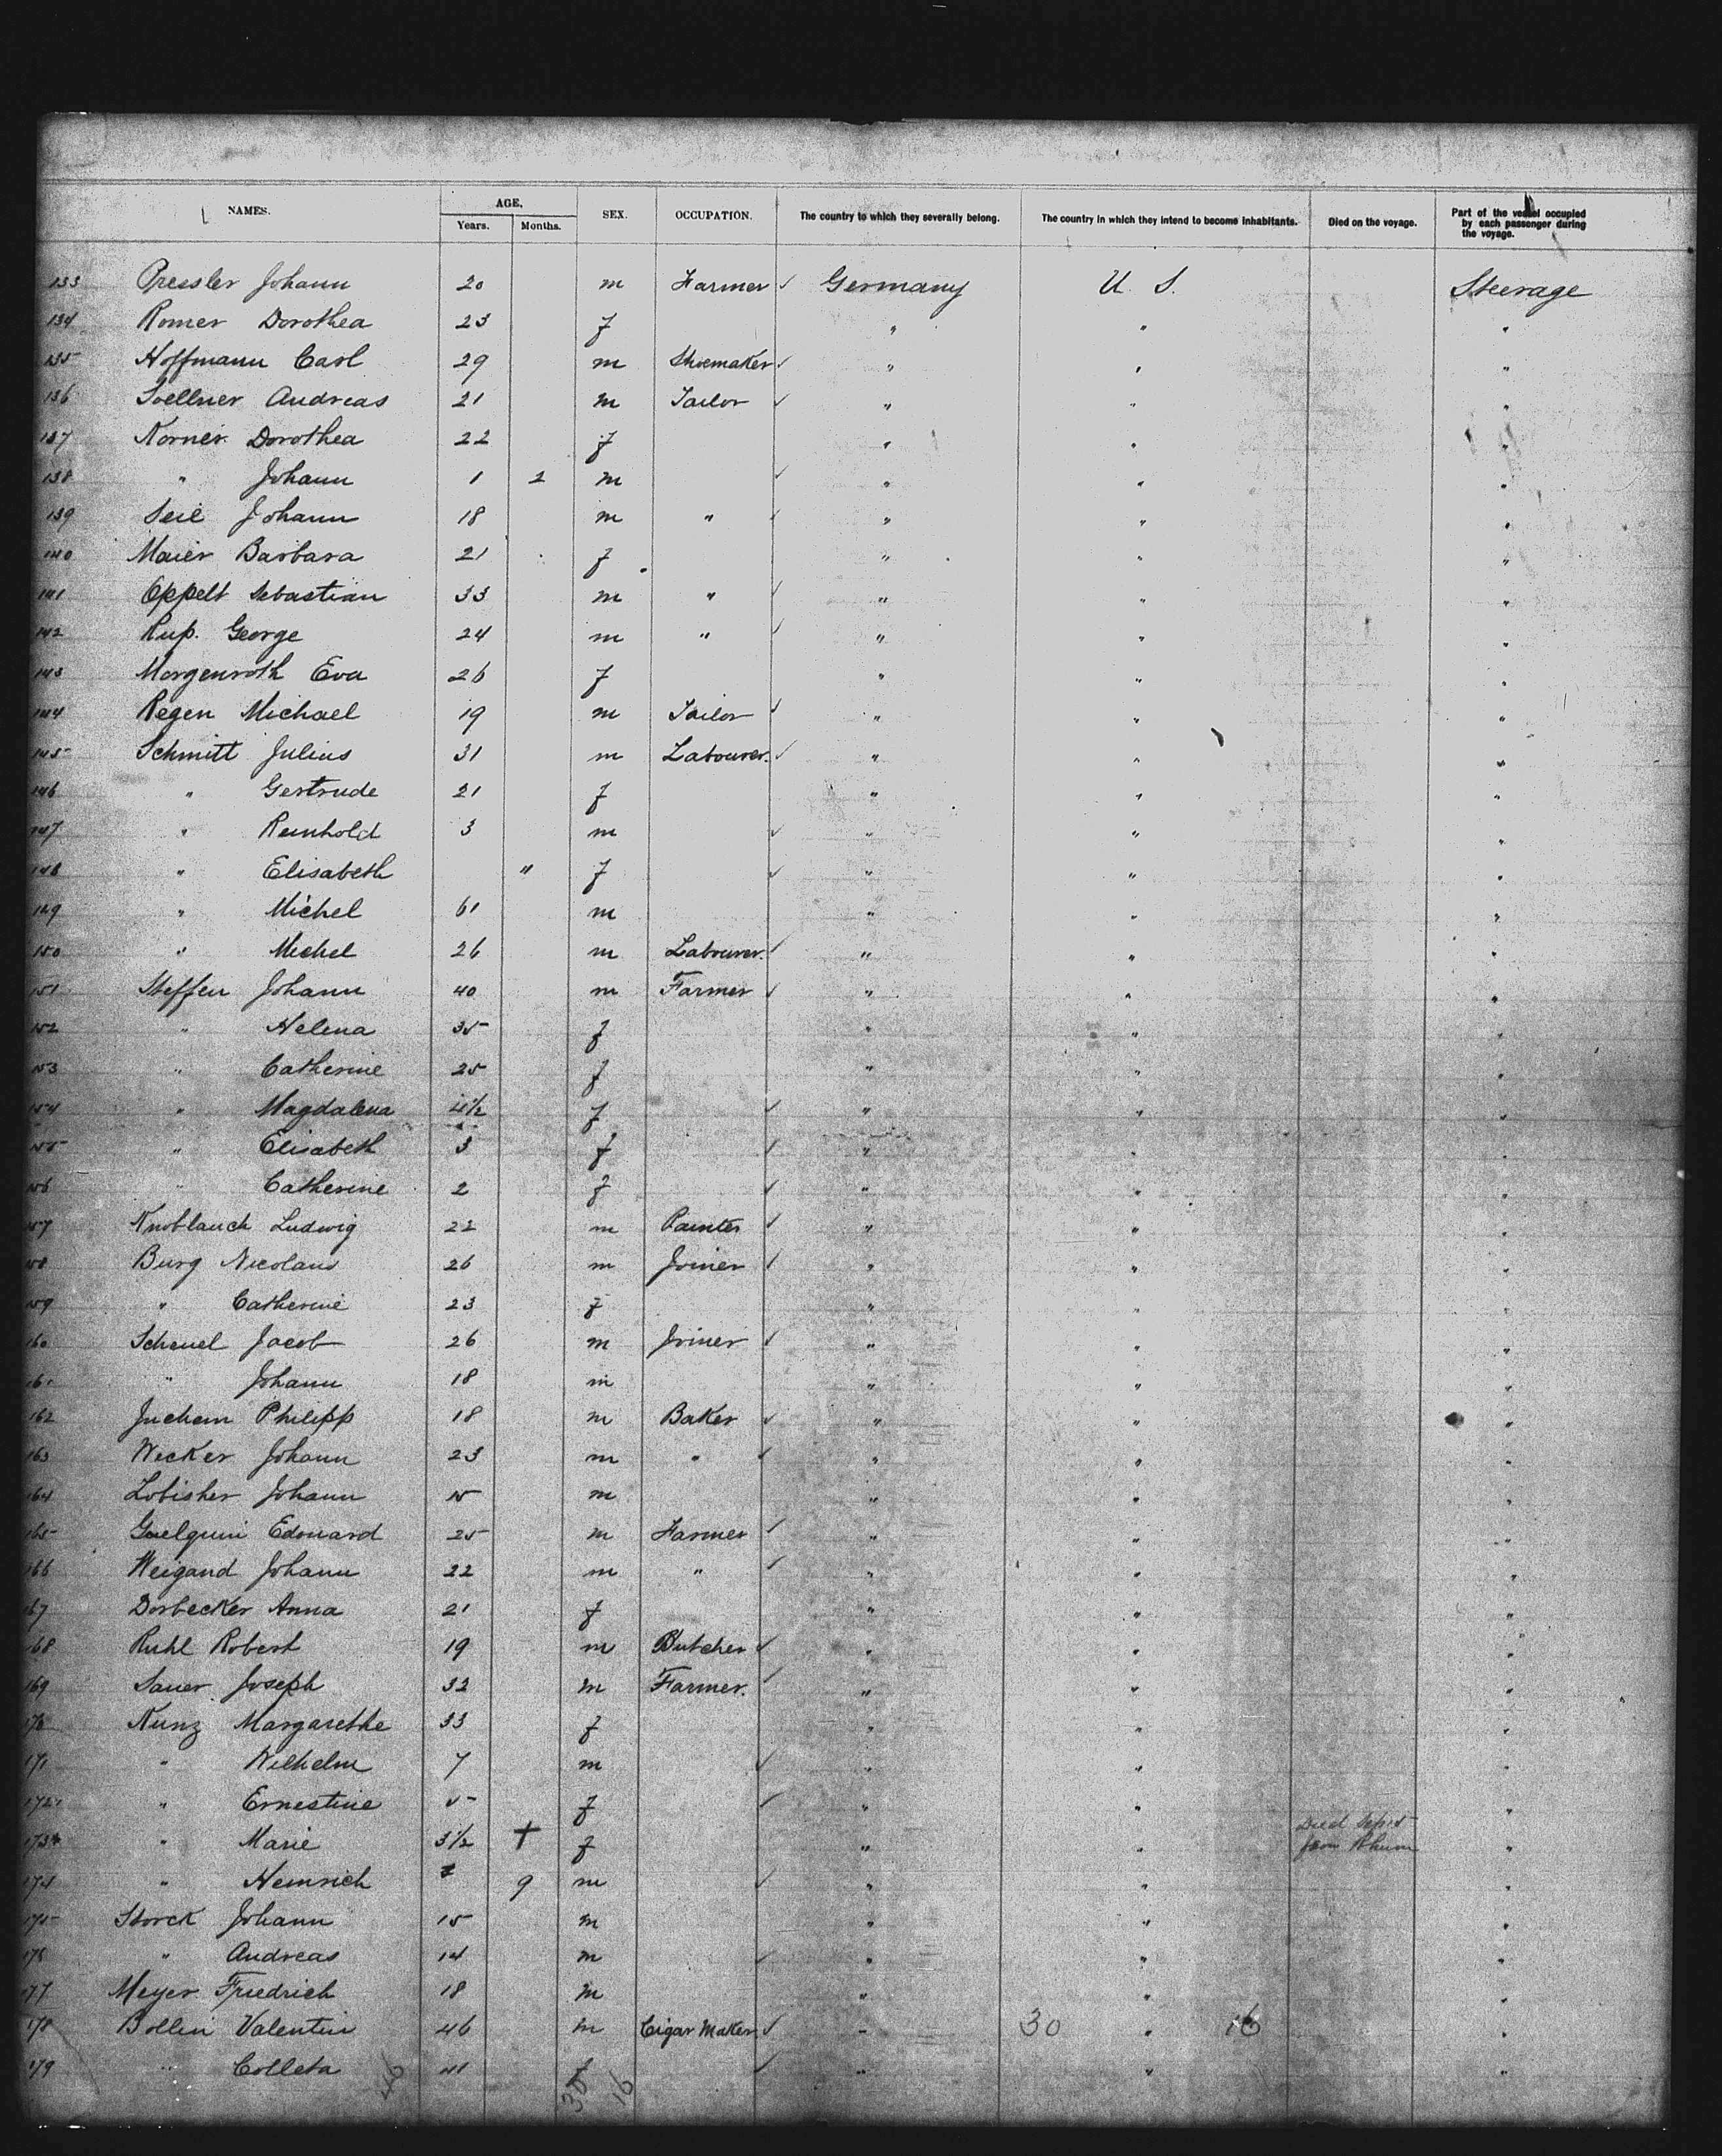 NAMES. AGE, SEX. OCCUPATION. The country to which they severally belong. The country in which they intend to become inhabitants. Died on the voyage. Part of the vessel occupied by each passenger during the voyage.
Years. Months.
133 Pressler Johann 20 m Farmer ✓ Germany U. S. Steerage
134 Romer Dorothea 23 f " " "
135 Hoffmann Carl 29 m Shoemaker ✓ " " "
136 Soellner Andreas 21 m Tailor ✓ " " "
137 Korner Dorothea 22 f " " "
138 " Johann 1 2 m ✓ " " "
139 Seil Johann 18 m " ✓ " " "
140 Maier Barbara 21 f " " "
141 Oppelt Sebastian 33 m " ✓ " " "
142 Rup. George 24 m " ✓ " " "
143 Morgenroth Eva 26 f " " "
144 Regen Michael 19 m Tailor ✓ " " "
145 Schmitt Julius 31 m Labourer. ✓ " " "
146 " Gertrude 21 f " " "
147 " Reinhold 3 m ✓ " " "
148 " Elisabeth " f ✓ " " "
149 " Michel 61 m " " "
150 " Michel 26 m Labourer. ✓ " " "
151 Steffen Johann 40 m Farmer ✓ " " "
152 " Helena 35 f " " "
153 " Catherine 25 f " " "
154 " Magdalena 4½ f ✓ " " "
155 " Elisabeth 3 f ✓ " " "
156 " Catherine 2 f ✓ " " "
157 Knoblauch Ludwig 22 m Painter ✓ " " "
158 Burg Nicolaus 26 m Joiner ✓ " " "
159 " Catherine 23 f " " "
160 Schenel Jacob 26 m Joiner ✓ " " "
161 " Johann 18 m " " "
162 Juchem Philipp 18 m Baker ✓ " " "
163 Wecker Johann 23 m " ✓ " " "
164 Lobisher Johann 15 m " " "
165 Edouard 25 m Farmer ✓ " " "
166 Weigand Johann 22 m " ✓ " " "
167 Dorbecker Anna 21 f " " "
168 Ruhl Robert 19 m Butcher ✓ " " "
169 Sauer Joseph 32 m Farmer. ✓ " " "
170 Kunz Margarethe 33 f " " "
171 " Wilhelm 7 m ✓ " " "
172 " Ernestine 5 f ✓ " " "
173 " Marie 3½ + f " " Died "
174 " Heinrich 9 m ✓ " " "
175 Storck Johann 15 m " " "
176 " Andreas 14 m ✓ " " "
177 Meyer Friedrich 18 m " " "
178 Bollin Valentin 46 m Cigar Maker ✓ " 30 " 16 "
179 " Colleta 41 f ✓ " " "
46 30 16